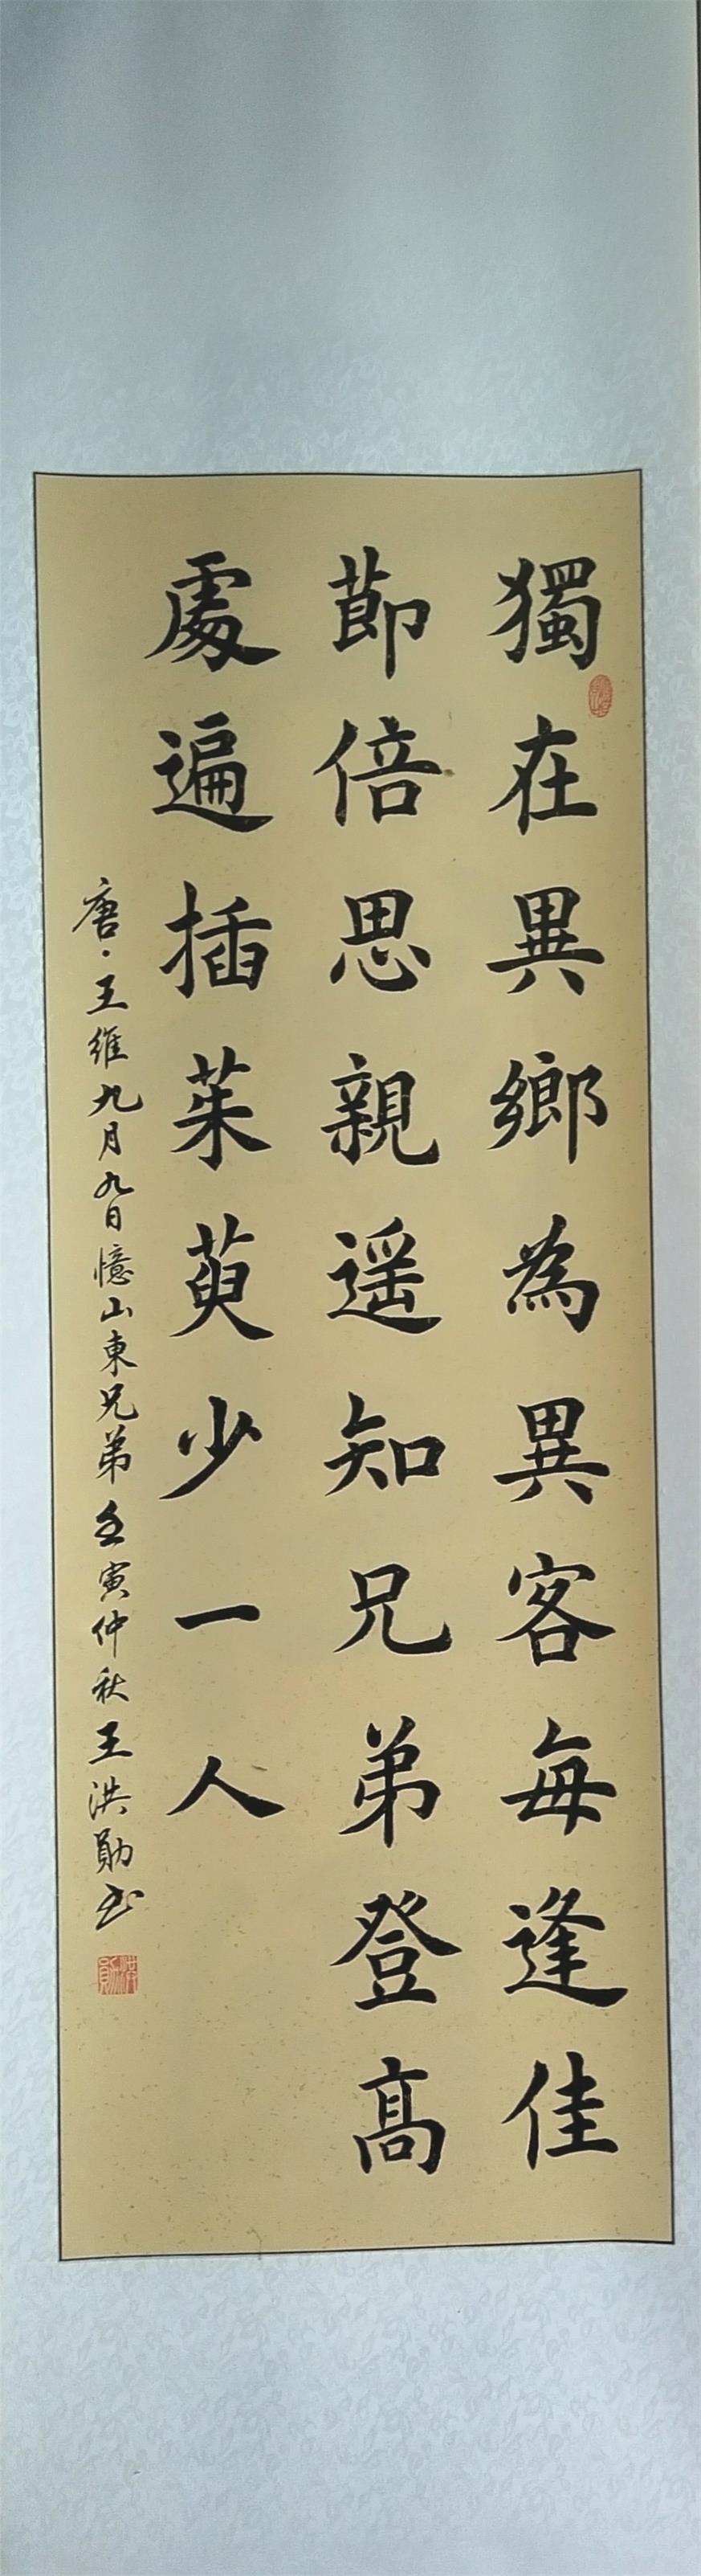 獨在異鄉為異客每逢佳
節倍思親遥知兄弟登高
處遍插茱萸少一人
唐·王維九月九日憶山東兄弟壬寅仲秋王洪勛书